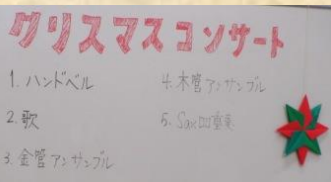 クリスマスコンサート
1. ハンドベル
2. 歌
3. 金管アンサンブル
4. 木管アンサンブル
5. Sax四重奏